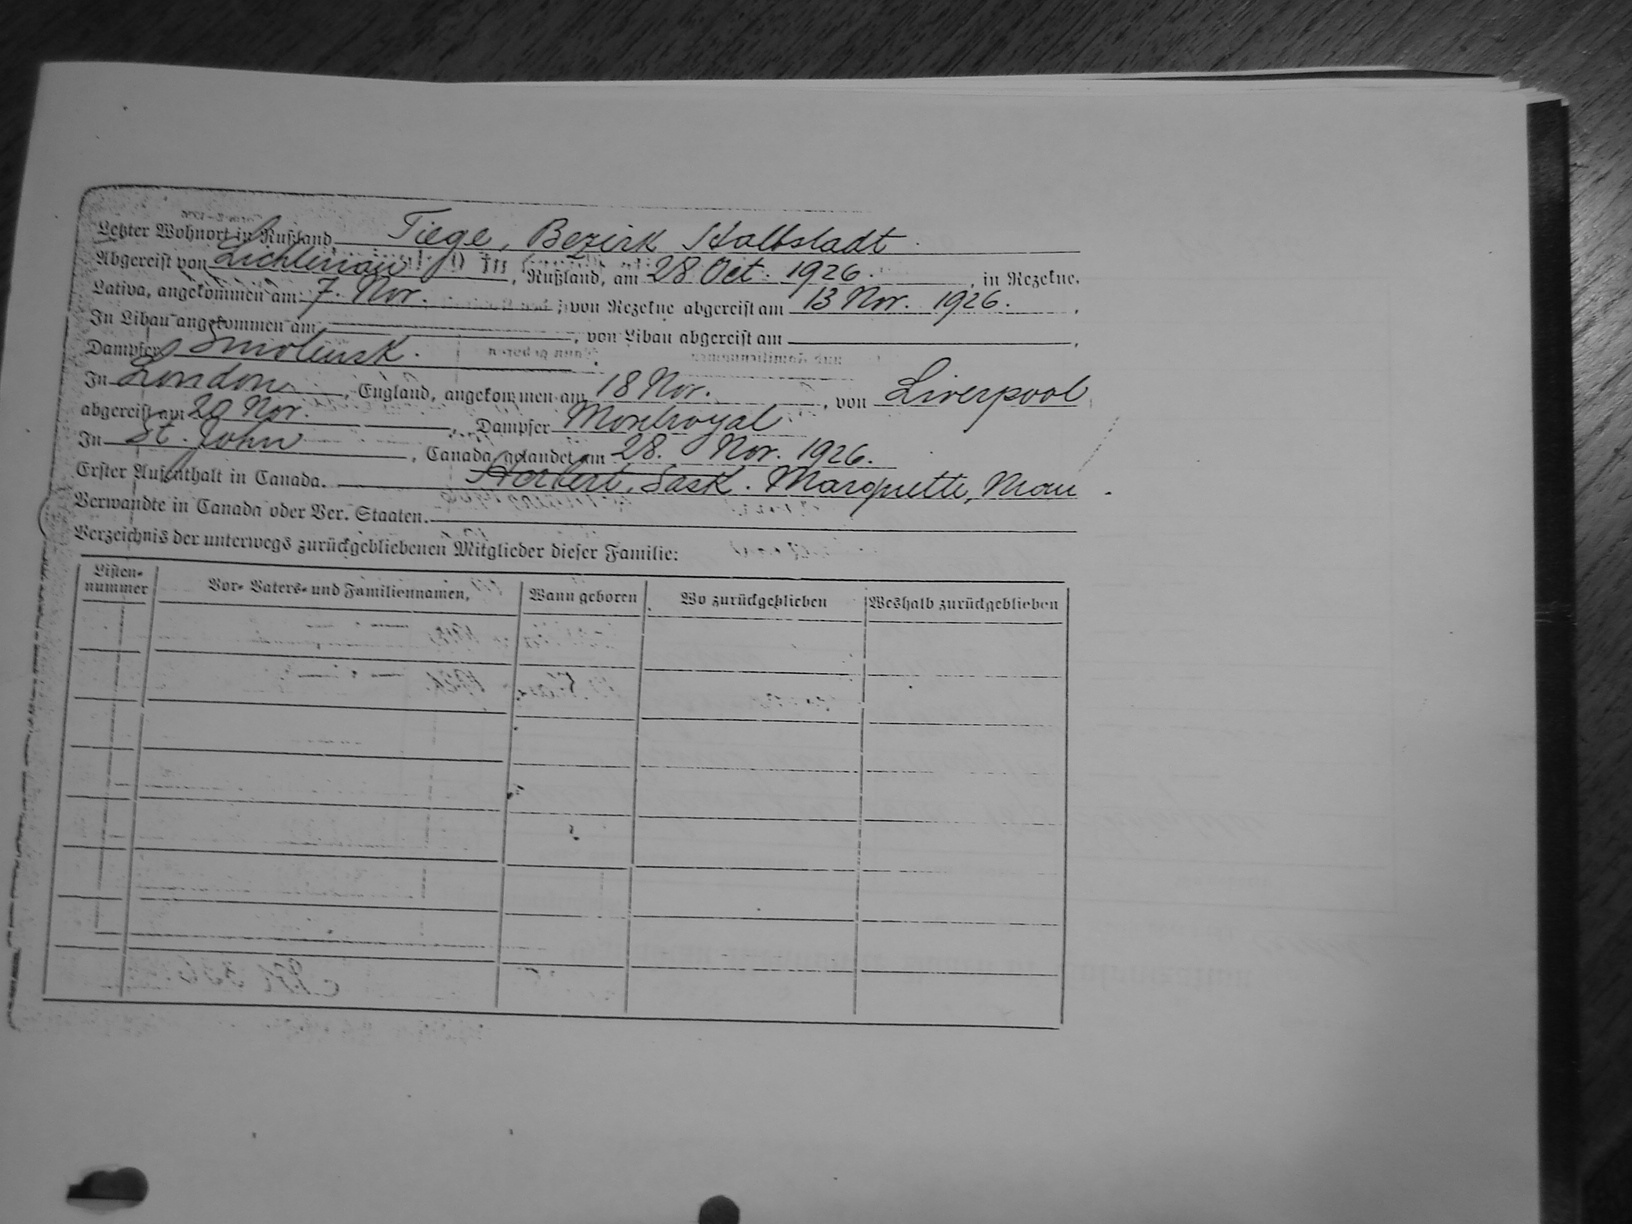 Letzter Wohnort in Rußland, Tiege, Bezirk Halbstadt.
Abgereist von Lichtenau, Rußland, am 28 Oct. 1926., in Rezekne,
Lativa, angekommen am 7. Nov. ; von Rezekne abgereist am 13 Nov. 1926.
In Libau angekommen am , von Libau abgereist am ,
Dampfer Smolensk.
In London, England, angekommen am 18 Nov. , von Liverpool
abgereist am 20 Nov. , Dampfer Montroyal
In St. John , Canada gelandet am 28. Nov. 1926.
Erster Aufenthalt in Canada. Herbert, Sask. Marquette, Man.
Verwandte in Canada oder Ver. Staaten.
Verzeichnis der unterwegs zurückgebliebenen Mitglieder dieser Familie:
Listen-
nummer
Vor- Vaters- und Familiennamen,
Wann geboren
Wo zurückgeblieben
Weshalb zurückgeblieben